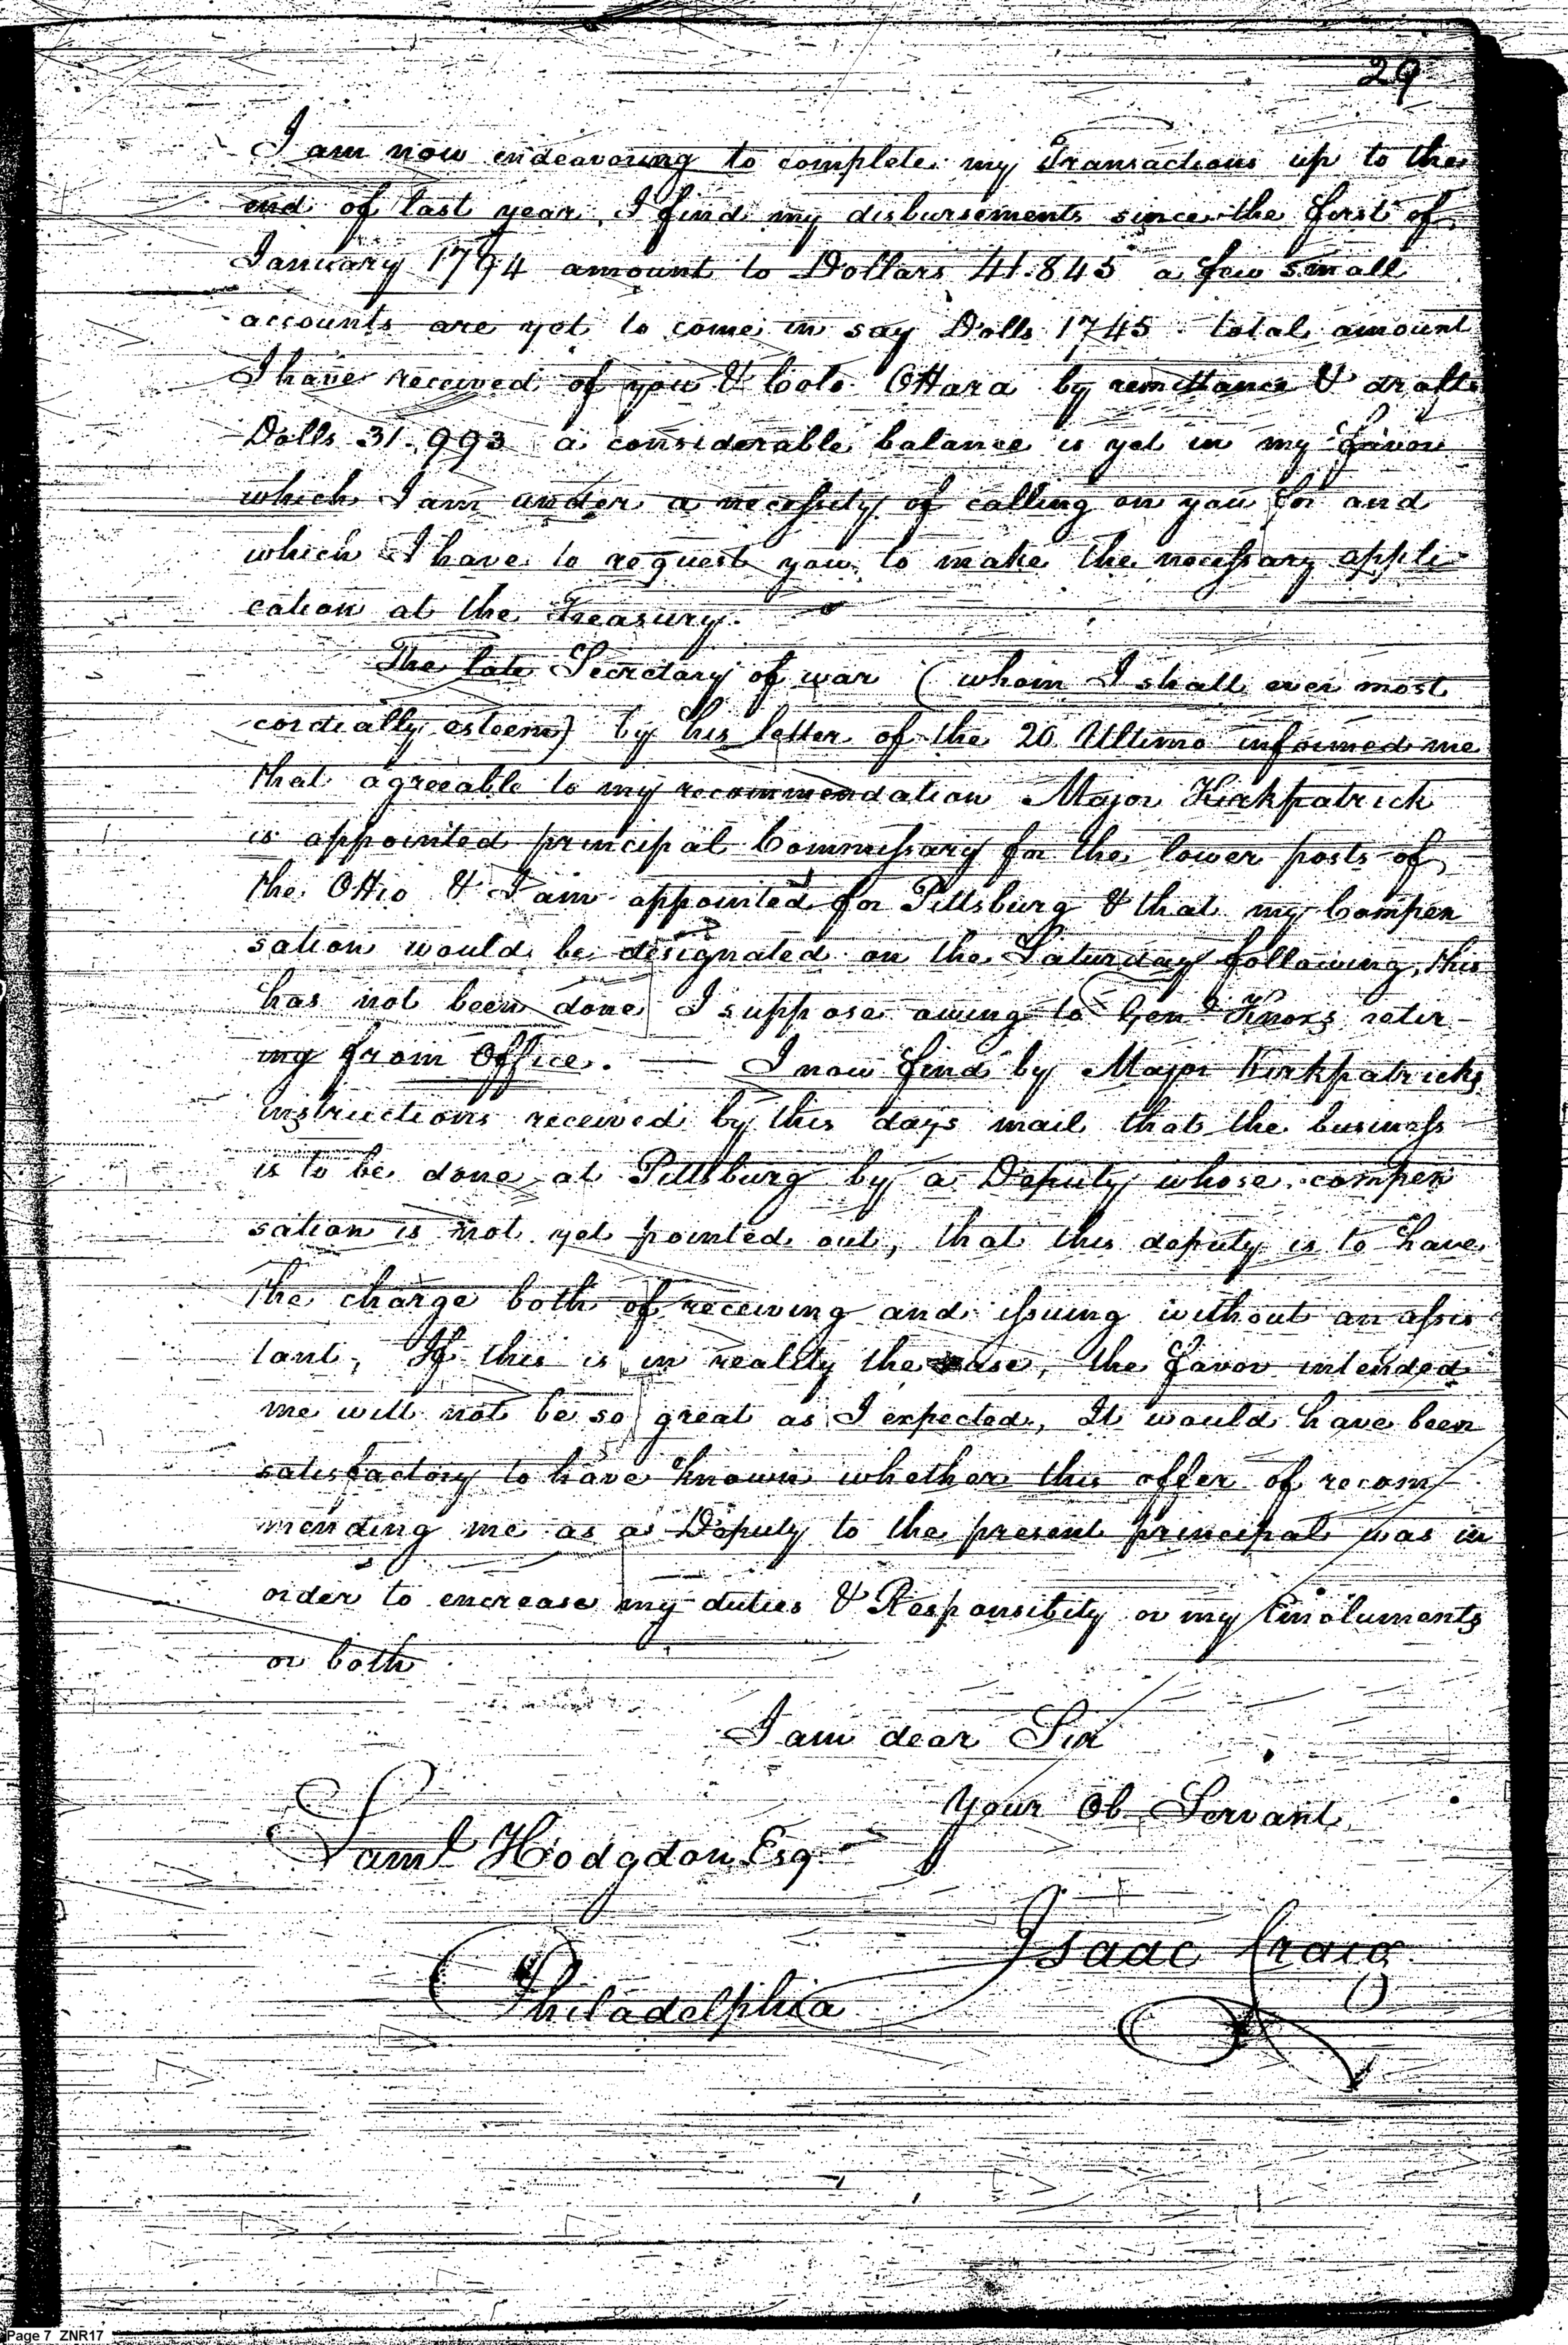 29
I am now endeavoring to complete my Transactions up to the
end of last year, I find my disbursements since the first of
January 1794 amount to Dollars 41.845 a few small
accounts are yet to come in say Dolls 1745 total amount
I have received of you & Colo OHara by remittance & drafts
Dolls 31.993 a considerable balance is yet in my favor
which I am under a necessity of calling on you for and
which I have to request you to make the necessary appli-
cation at the Treasury.
The late Secretary of war (whom I shall ever most
cordially esteem) by his letter of the 20 Ultimo informed me
that agreeable to my recommendation Major Kirkpatrick
is appointed principal Commissary for the lower posts of
the OHio & I am appointed for Pittsburg & that my Compen
sation would be designated on the Saturday following, this
has not been done I suppose owing to Genl Knoxs retir-
ing from Office. — I now find by Major Kirkpatricks
instructions received by this days mail that the business
is to be done at Pittsburg by a Deputy whose compen
sation is not yet pointed out, that this deputy is to have
the charge both of receiving and issuing without an assis
tant, If this is in reality the case, the favor intended
me will not be so great as I expected, It would have been
satisfactory to have known whether this offer of recom
mending me as a Deputy to the present principal was in
order to encrease my duties & Responsibity or my Emoluments
or both
I am dear Sir
your Ob Servant
Saml Hodgdon Esq
Isaac Craig
Philadelphia
Page 7 ZNR17